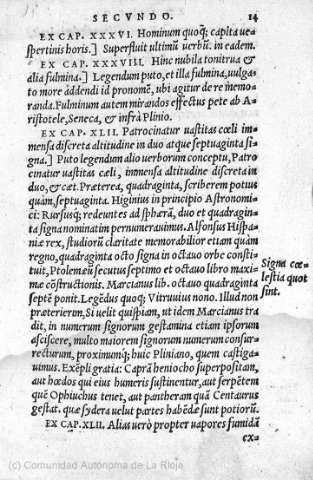 SECVNDO. 14
EX CAP. XXXVI. Hominum quoq; capita ue=
spertinis horis.] Superfluit ultimũ uerbũ. in eadem.
EX CAP. XXXVIII. Hinc nubila tonitrua &
alia fulmina.] Legendum puto, et illa fulmina, uulga=
to more addendi id pronomẽ, ubi agitur de re memo=
randa. Fulminum autem mirandos effectus pete ab A=
ristotele, Seneca, & infrà Plinio.
EX CAP. XLII. Patrocinatur uastitas cœli im=
mensa discreta altitudine in duo atque septuaginta si=
gna.] Puto legendum alio uerborum conceptu, Patro
cinatur uastitas cæli, immensa altitudine discreta in
duo, &cæt. Præterea, quadraginta, scriberem potius
quàm, septuaginta. Higinius in principio Astronomi=
ci: Rursusq; redeuntes ad sphærã, duo et quadragin=
ta signa nominatim pernumerauimus. Alfonsus Hispa=
niæ rex, studiorũ claritate memorabilior etiam quàm
regno, quadraginta octo signa in octauo orbe consti=
tuit, Ptolemæũ secutus septimo et octauo libro maxi=
mæ cõstructionis. Marcianus lib. octauo quadraginta
septẽ ponit. Legẽdus quoq; Vitruuius nono. Illud non
præterierim, Si uelit quispiam, ut idem Marcianus tra
dit, in numerum signorum gestamina etiam ipsorum
asciscere, multo maiorem signorum numerum consur=
recturum, proximumq; huic Pliniano, quem castiga=
uimus. Exẽpli gratia: Caprã heniocho superpositam,
aut hœdos qui eius humeris sustinentur, aut serpẽtem
quẽ Ophiuchus tenet, aut pantheram quã Centaurus
gestat. quæ sydera uelut partes habẽdæ sunt potiorũ.
EX CAP. XLII. Alias uerò propter uapores fumidã
ex=
Signa cœ=
lestia quot
sint.
(c) Comunidad Autónoma de La Rioja